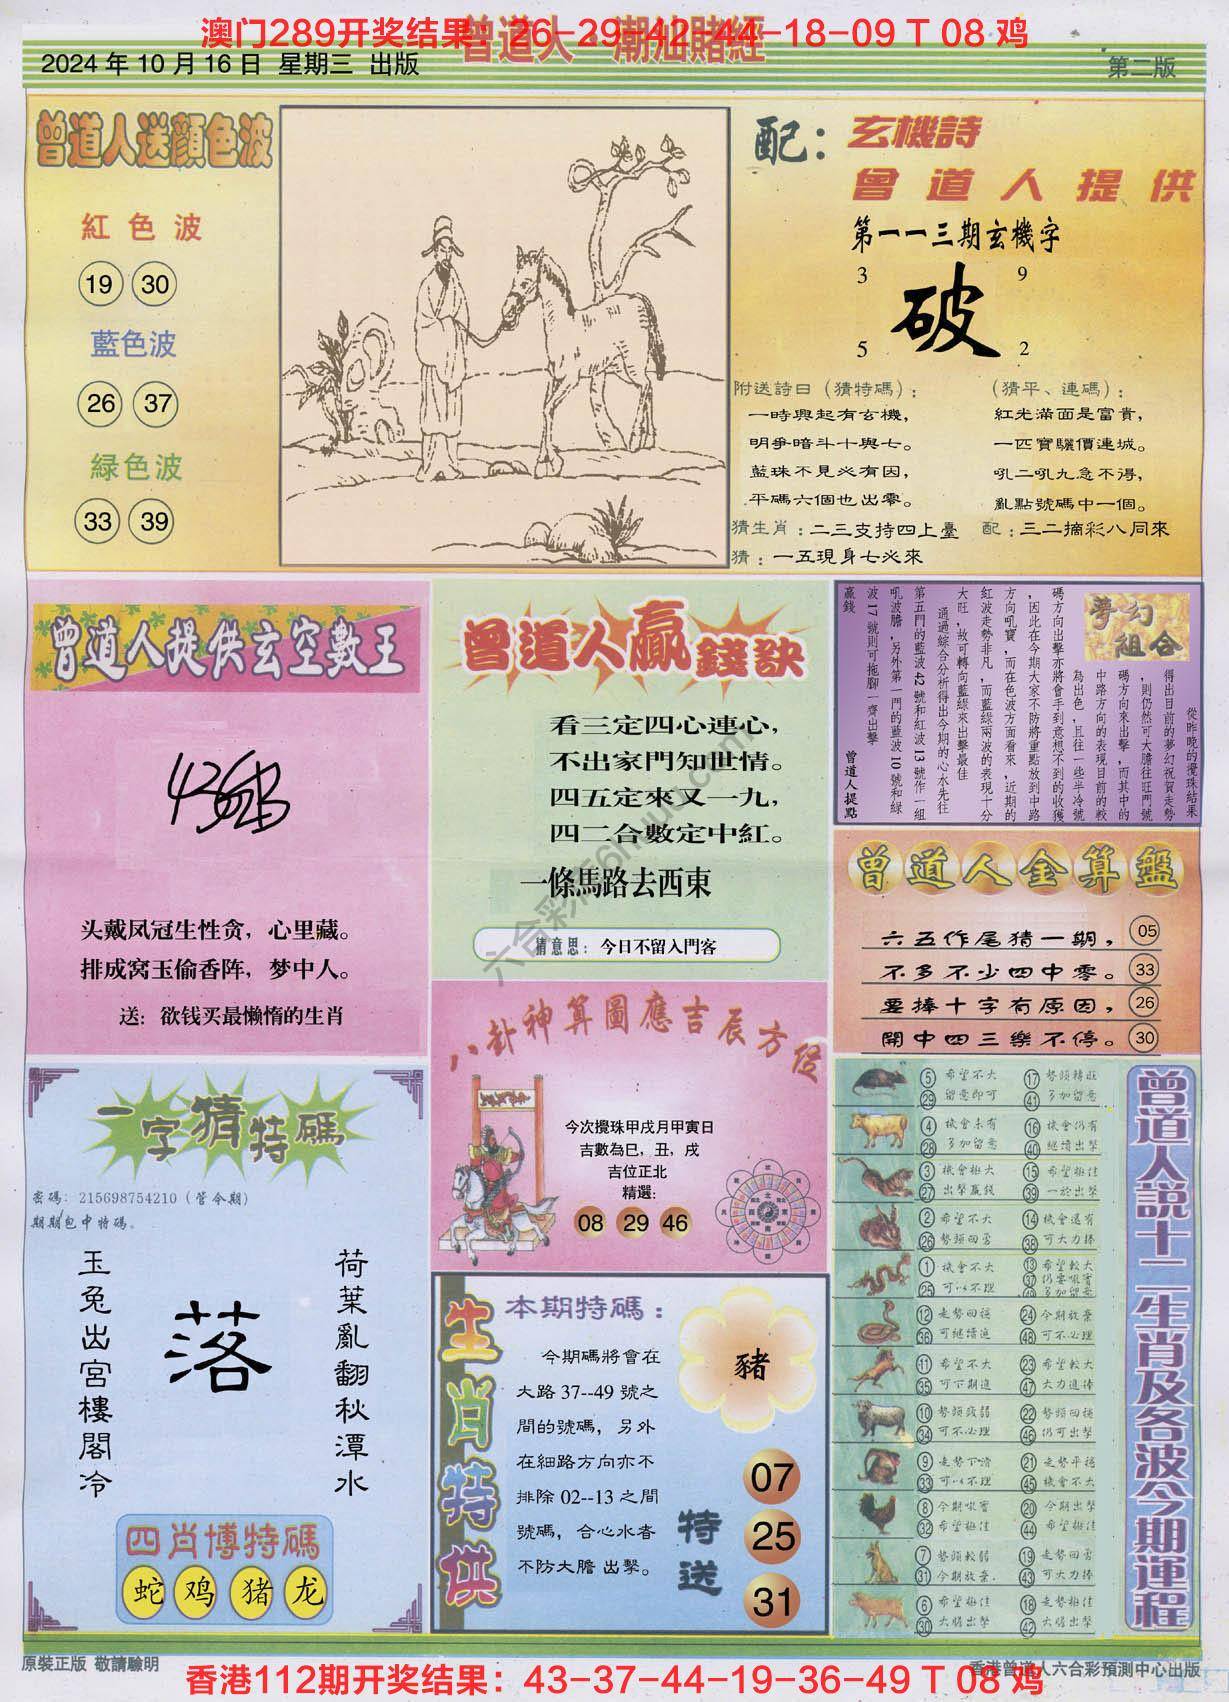 澳门289开奖结果：26-29-42-44-18-09 T 08 鸡
曾道人 潮汕賭經
2024 年 10 月 16 日 星期三 出版
第二版
曾道人送顏色波
紅色波
19 30
藍色波
26 37
緑色波
33 39
配：玄機詩
曾道人提供
第一一三期玄機字
3 9
破
5 2
附送詩曰（猜特碼）：
一時興起有玄機，
明爭暗斗十與七。
藍珠不見必有因，
平碼六個也出零。
（猜平、連碼）：
紅光滿面是富貴，
一匹寶驪價連城。
吼二吼九急不得，
亂點號碼中一個。
猜生肖：二三支持四上臺
配：三二摘彩八同來
猜：一五現身七必來
曾道人提供玄空數王
头戴凤冠生性贪，心里藏。
排成窝玉偷香阵，梦中人。
送：欲钱买最懒惰的生肖
曾道人贏錢訣
看三定四心連心，
不出家門知世情。
四五定來又一九，
四二合數定中紅。
一條馬路去西東
猜意思：今日不留入門客
夢幻組合
從昨晚的攪珠結果
得出目前的夢幻祝賀走勢
，則仍然可大膽往旺門號
碼方向來出擊，而其中的
中路方向的表現目前的較
為出色，且往一些半冷號
碼方向出擊亦將會手到意想不到的收獲
，因此在今期大家不防將重點放到中路
方向吼寶，而在色波方面看來，近期的
紅波走勢非凡，而藍綠兩波的表現十分
大旺，故可轉向藍綠來出擊最佳
通過綜合分析得出今期的心水先往
第五門的藍波42號和紅波13號作一組
吼波膽，另外第一門的藍波10號和綠
波17號則可拖腳一齊出擊
贏錢
曾道人提點
曾道人金算盤
六五作尾猜一期， 05
不多不少四中零。 33
要捧十字有原因， 26
開中四三樂不停。 30
一字猜特碼
密碼：215698754210（管今期）
期期包中特碼。
荷葉亂翻秋潭水
落
玉兔出宮樓閣冷
四肖博特碼
蛇 鸡 猪 龙
八卦神算圖應吉辰方位
今次攪珠甲戌月甲寅日
吉數為巳，丑，戌
吉位正北
精選：
08 29 46
生肖特供
本期特碼：
今期碼將會在
大路 37--49 號之
間的號碼，另外
在細路方向亦不
排除 02--13 之間
號碼，合心水者
不防大膽 出擊。
豬
特送
07
25
31
曾道人說十二生肖及各波今期運程
5 希望不大 17 勢頭轉旺
29 留意即可 41 多加留意
4 機會未有 16 機會仍有
28 多加留意 40 繼續出擊
3 機會極大 15 希望極佳
27 出擊贏錢 39 一於出擊
2 希望不大 14 機會還有
26 勢頭回勇 38 可大力捧
1 機會不大 13 希望較大
25 可以不理 37 仍要吼實
49 多加留意
12 走勢回穩 24 今期放棄
36 可繼續追 48 可不必理
11 希望不大 23 希望較大
35 可下期追 47 大力追捧
10 勢頭疲弱 22 勢頭回穩
34 可不必理 46 仍可出擊
9 走勢下滑 21 走勢平穩
33 可以不理 45 機會不大
8 今期吼實 20 今期出擊
32 希望極佳 44 希望極佳
7 勢頭較弱 19 走勢回勇
31 今期放棄. 43 可大力捧
6 希望極佳 18 走勢極佳
30 大膽出擊 42 大膽出擊
六合彩 6huuu.com
原裝正版 敬請驗明
香港曾道人六合彩預測中心出版
香港112期开奖结果：43-37-44-19-36-49 T 08 鸡